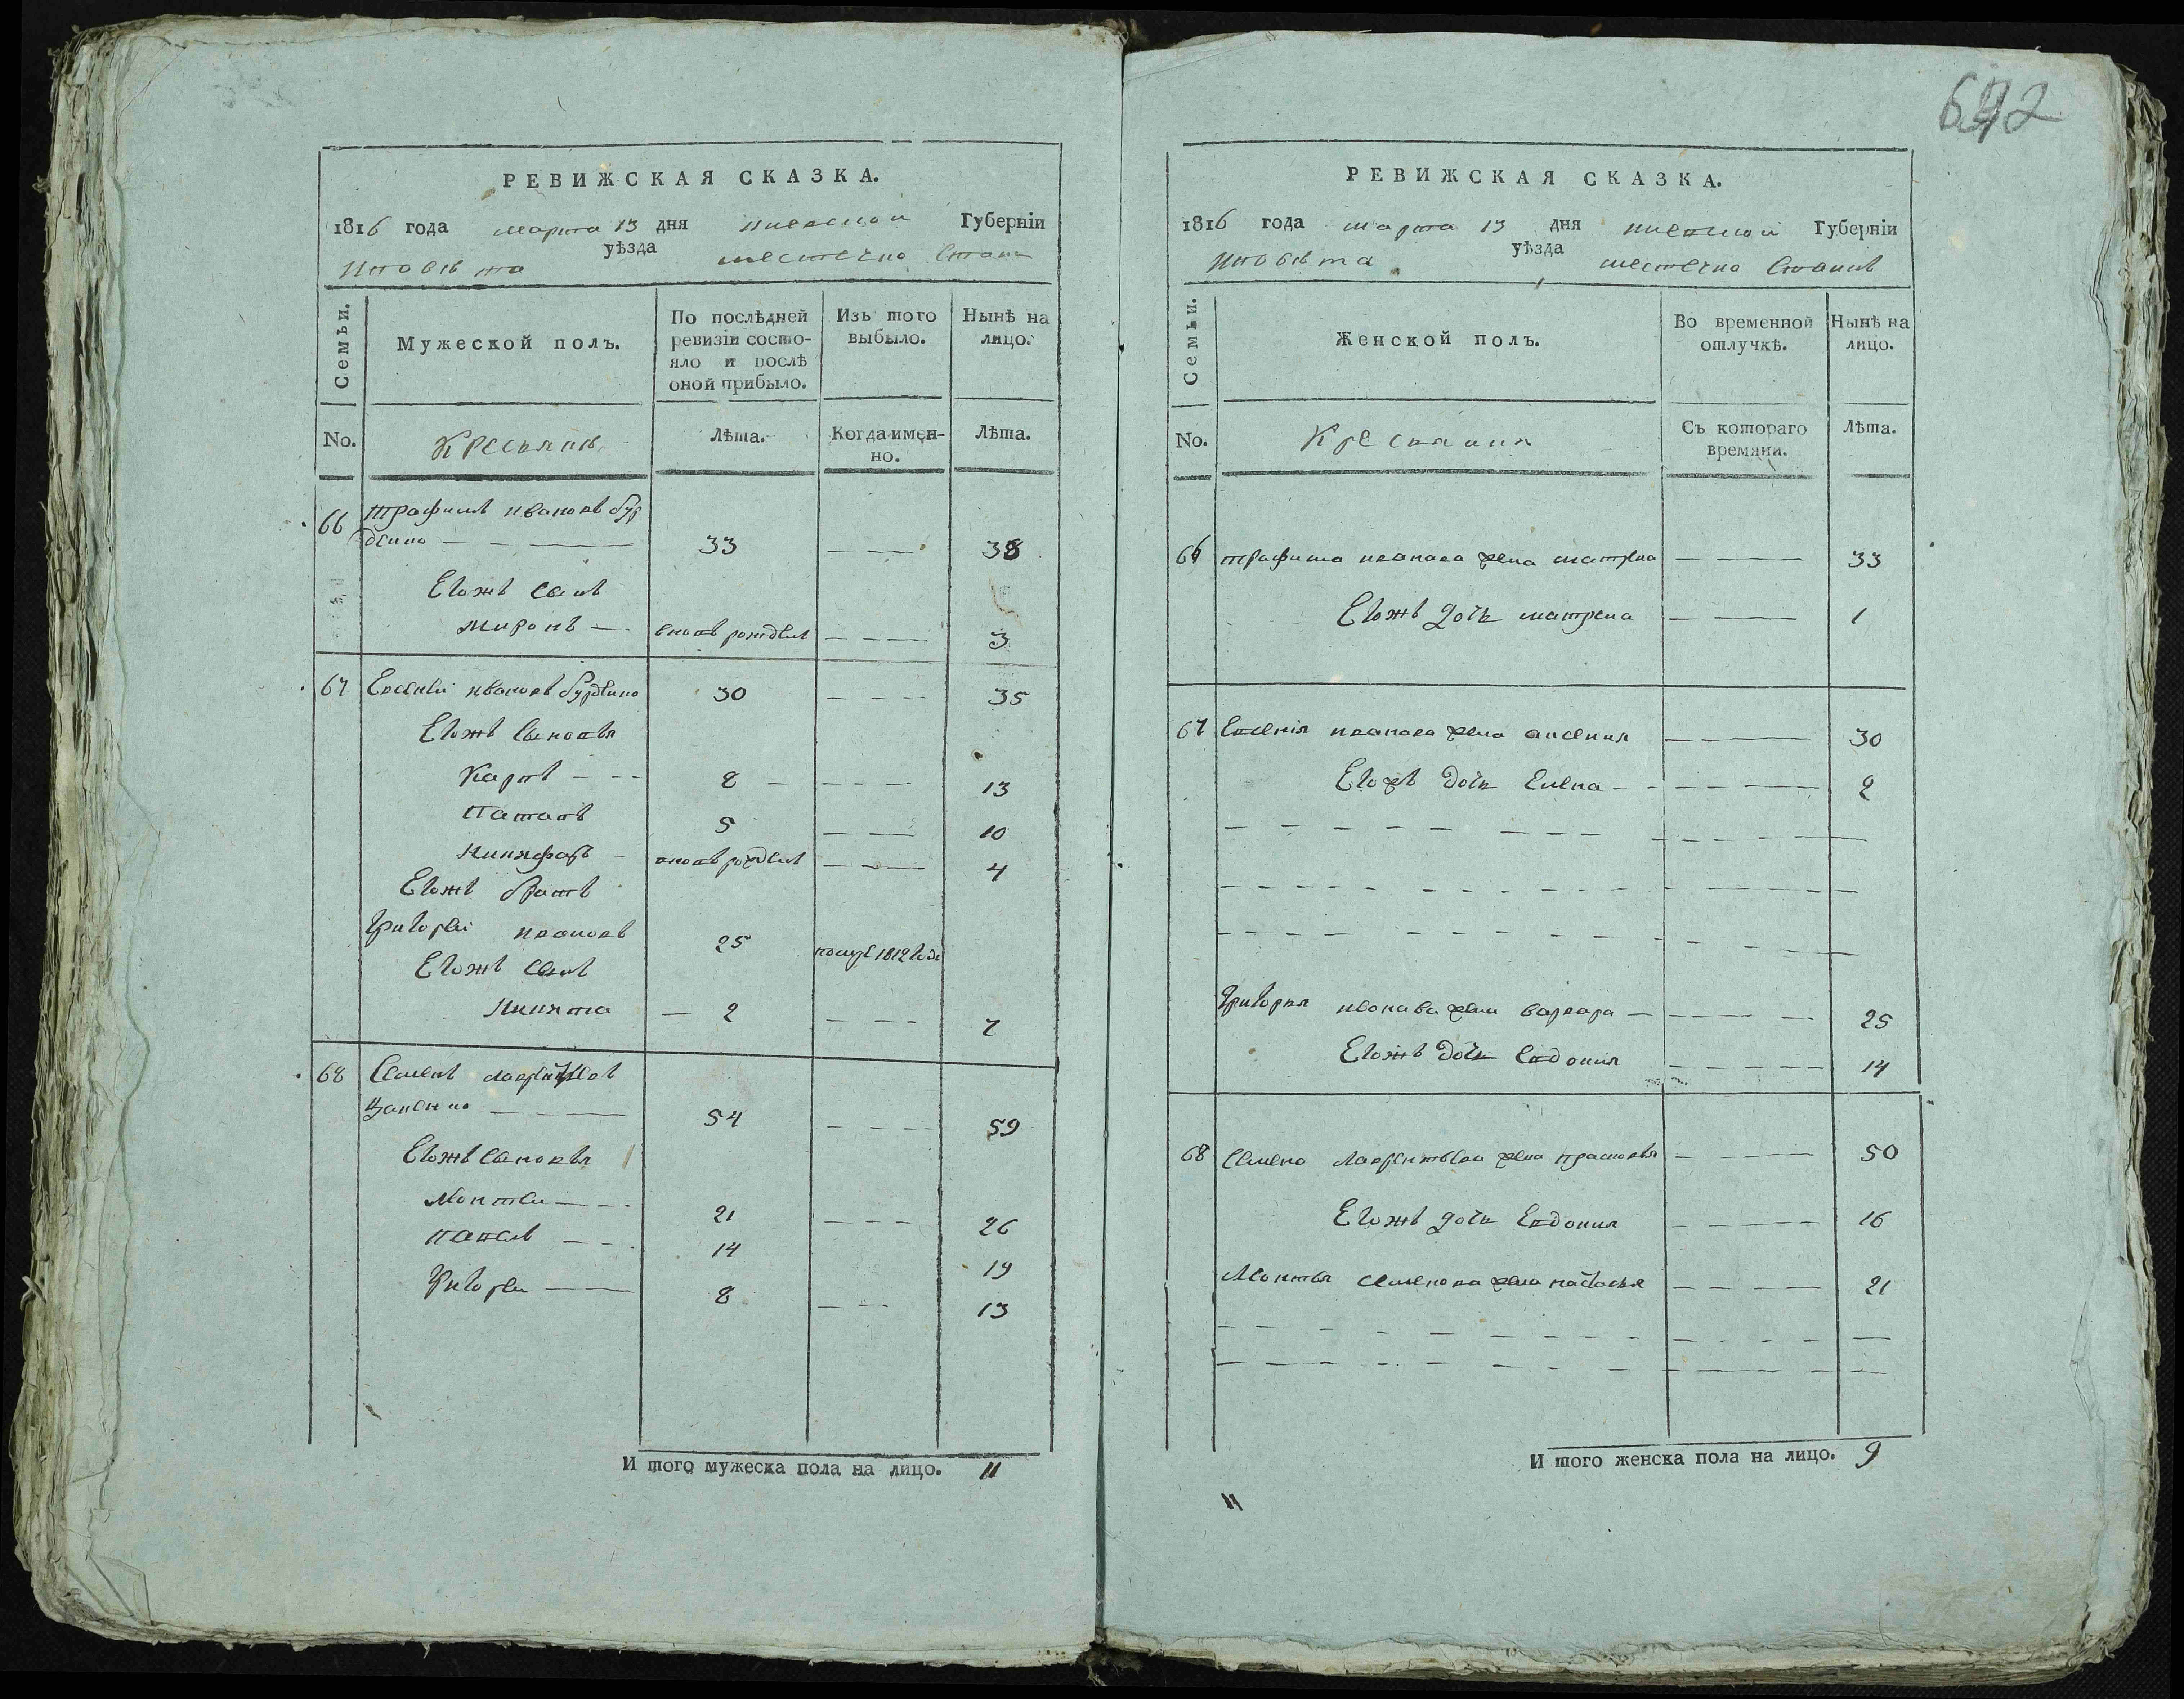 642
РЕВИЖСКАЯ СКАЗКА.
1816 года марта 13 дня киевской Губерніи
иповѣта уѣзда местечко Ставі
Семьи. Мужеской полъ. По послѣдней ревизіи состояло и послѣ оной прибыло. Изъ того выбыло. Нынѣ на лицо.
No. Кресьянѣ Лѣта. Когда именно. Лѣта.
66 трафимъ ивановъ бур
денко 33 38
Егожъ сынъ
миронъ вновь рожденъ 3
67 Евсеній ивановъ бурденко 30 35
Егожъ сыновья
Карпъ 8 13
Патапъ 5 10
Никифоръ вновь рожденъ 4
Егожъ братъ
Григорей ивановъ 25 помре 1812 годе
Егожъ сынъ
Никита 2 7
68 Семенъ лаврентьевъ
54 59
Егожъ сыновья
Моктеи 21 26
павелъ 14 19
Григореи 8 13
И того мужеска пола на лицо. 11
РЕВИЖСКАЯ СКАЗКА.
1816 года марта 13 дня киевской Губерніи
иповѣта уѣзда местечко Ставів
Семьи. Женской полъ. Во временной отлучкѣ. Нынѣ на лицо.
No. Кресьянки Съ котораго времяни. Лѣта.
66 трафима иванова жена матрена 33
Егожъ дочь матрена 1
67 Евсенія иванова жена аксения 30
Егожъ дочь Елена 2
Григория иванова жена варвара 25
Егожъ дочь Евдокия 14
68 Семена Лаврентьева жена прасковья 50
Егожъ дочь Евдокия 16
Моктея семенова жена настасья 21
И того женска пола на лицо. 9
11